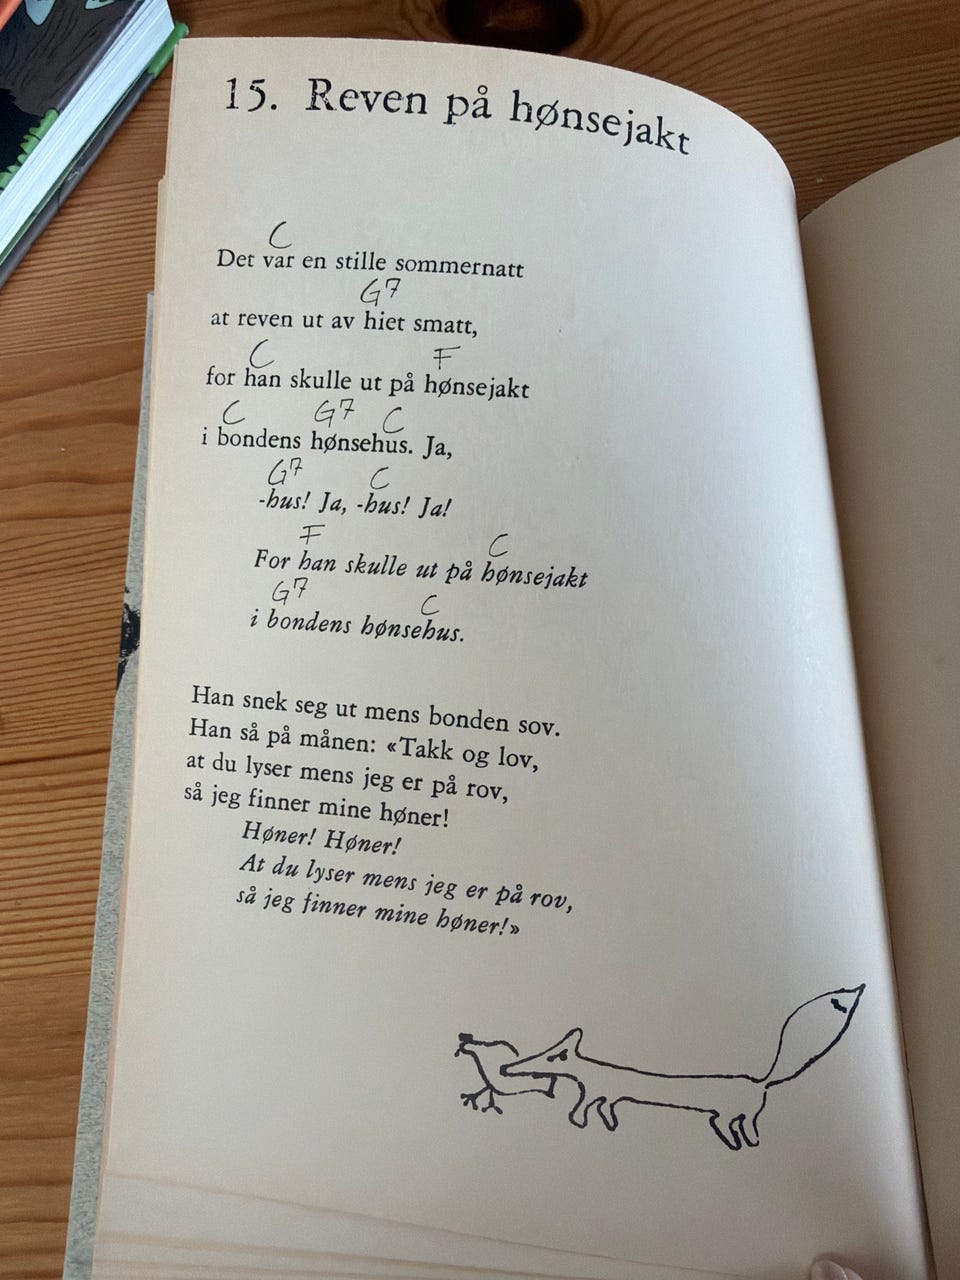 15. Reven på hønsejakt
C
Det var en stille sommernatt
G7
at reven ut av hiet smatt,
C F
for han skulle ut på hønsejakt
C G7 C
i bondens hønsehus. Ja,
G7 C
-hus! Ja, -hus! Ja!
F C
For han skulle ut på hønsejakt
G7 C
i bondens hønsehus.
Han snek seg ut mens bonden sov.
Han så på månen: «Takk og lov,
at du lyser mens jeg er på rov,
så jeg finner mine høner!
Høner! Høner!
At du lyser mens jeg er på rov,
så jeg finner mine høner!»